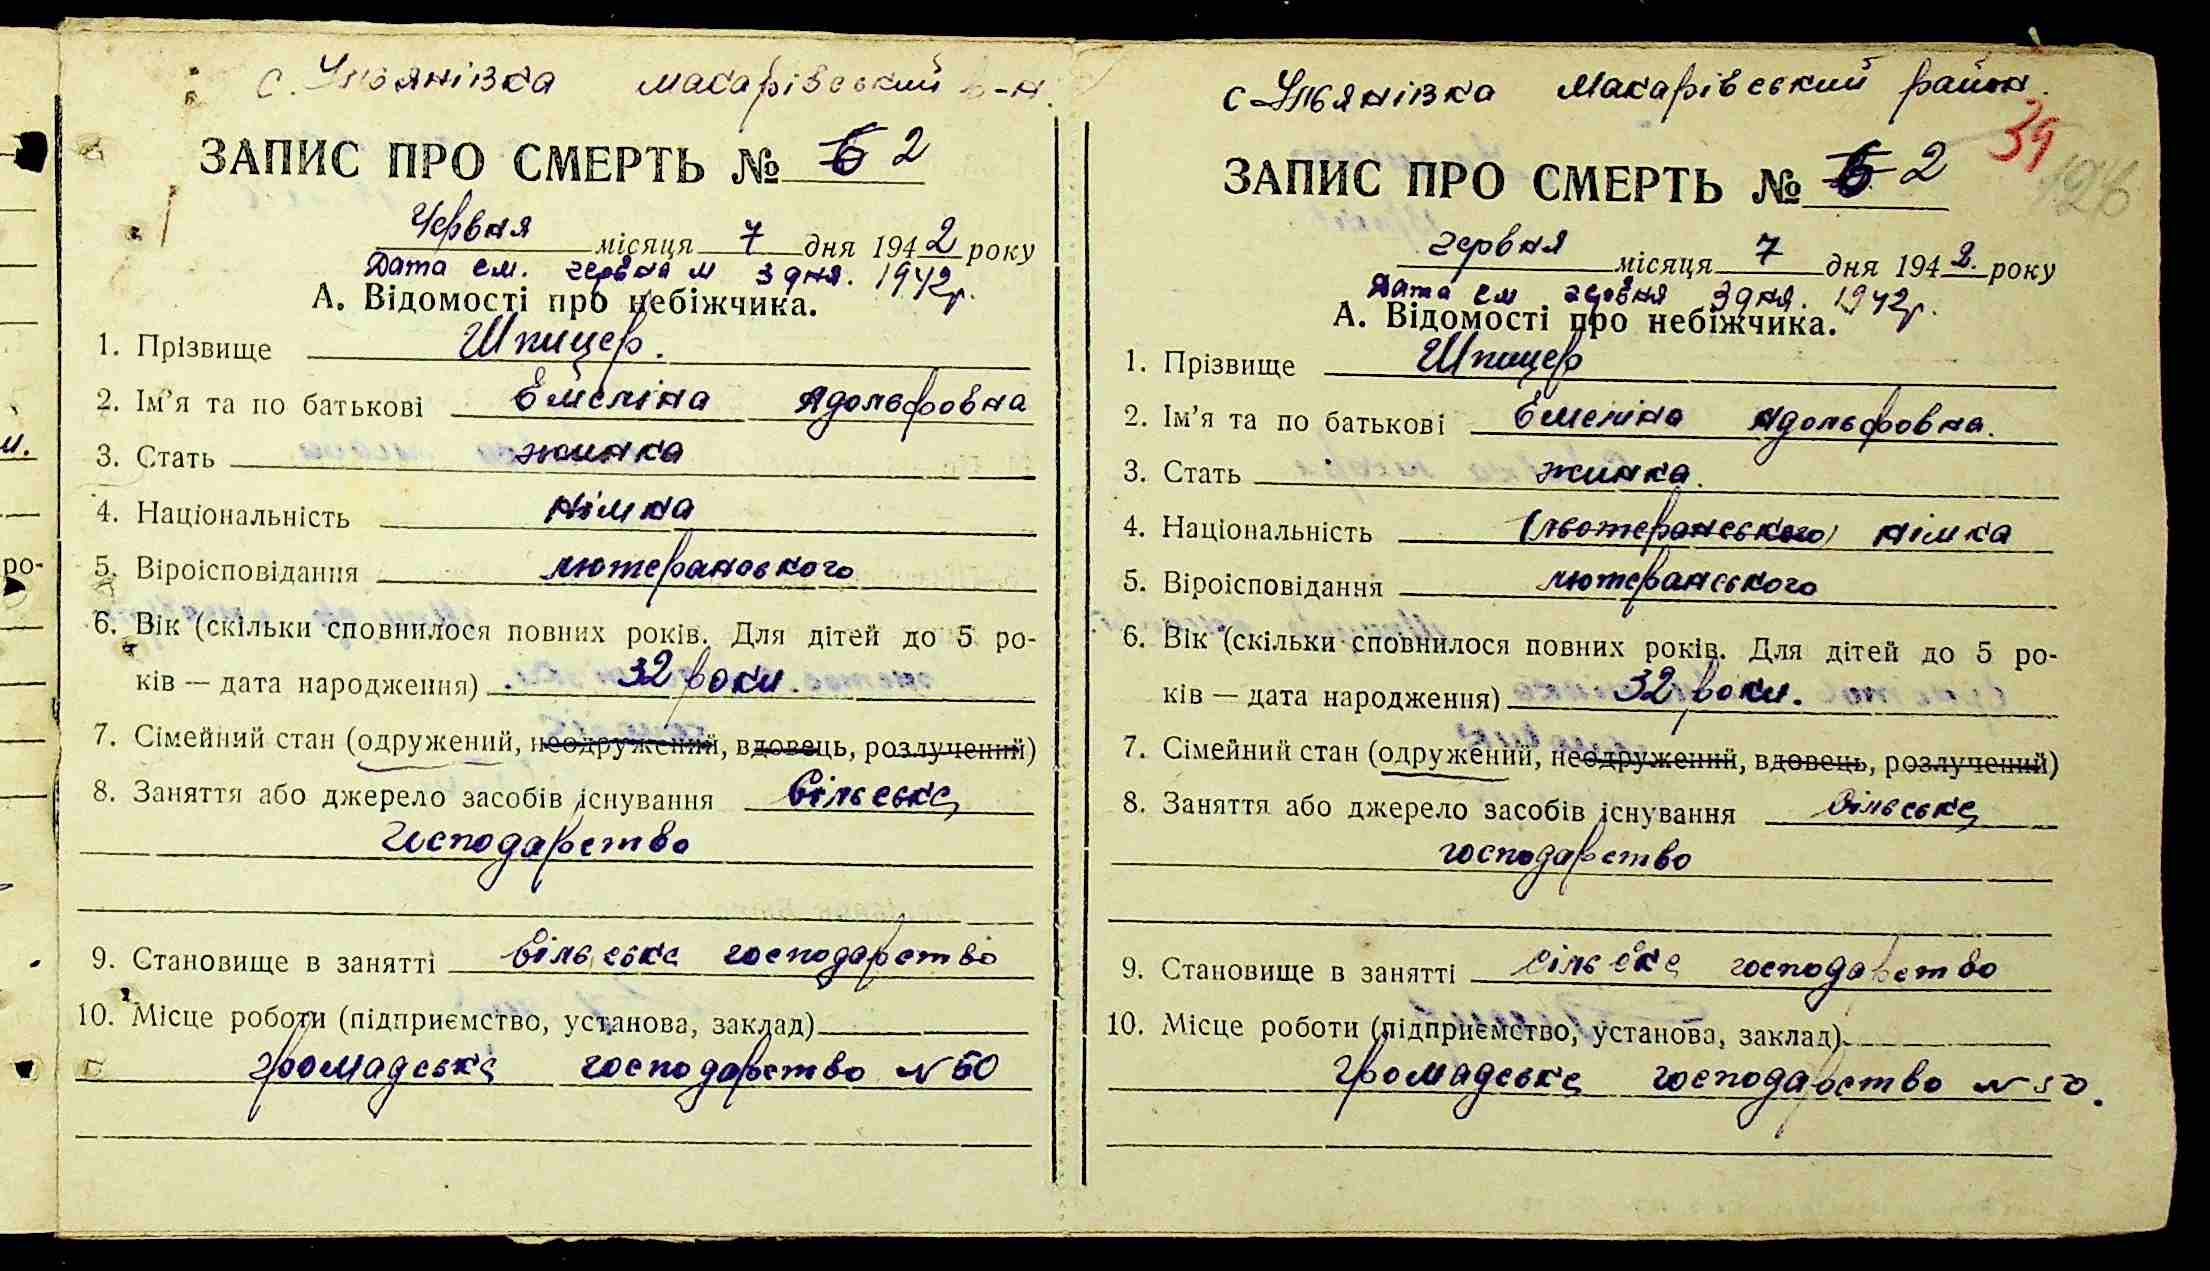 с. Ульянівка Макарівський р-н.
ЗАПИС ПРО СМЕРТЬ № 6 2
Червня місяця 7 дня 1942 року
Дата см. червня м 3 дня. 1942р.
А. Відомості про небіжчика.
1. Прізвище Шпицер.
2. Ім’я та по батькові Емеліна Адольфовна
3. Стать жинка
4. Національність німка
5. Віроісповідання лютерановского
6. Вік (скільки сповнилося повних років. Для дітей до 5 ро-
ків — дата народження) 32 роки.
7. Сімейний стан (одружений, неодружений, вдовець, розлучений)
8. Заняття або джерело засобів існування сільське
господарство
9. Становище в занятті сільське господарство
10. Місце роботи (підприємство, установа, заклад)
громадське господарство N 50
с Ульянівка Макарівський район.
39
126
ЗАПИС ПРО СМЕРТЬ № 6 2
червня місяця 7 дня 1942. року
Дата см червня 3 дня. 1942р.
А. Відомості про небіжчика.
1. Прізвище Шпицер
2. Ім’я та по батькові Емеліна Адольфовна.
3. Стать жинка.
4. Національність (льотеранського) німка
5. Віроісповідання лютеранського
6. Вік (скільки сповнилося повних років. Для дітей до 5 ро-
ків — дата народження) 32 роки.
7. Сімейний стан (одружений, неодружений, вдовець, розлучений)
8. Заняття або джерело засобів існування сільське
господарство
9. Становище в занятті сільске господарство
10. Місце роботи (підприємство, установа, заклад)
громадське господарство N 50.